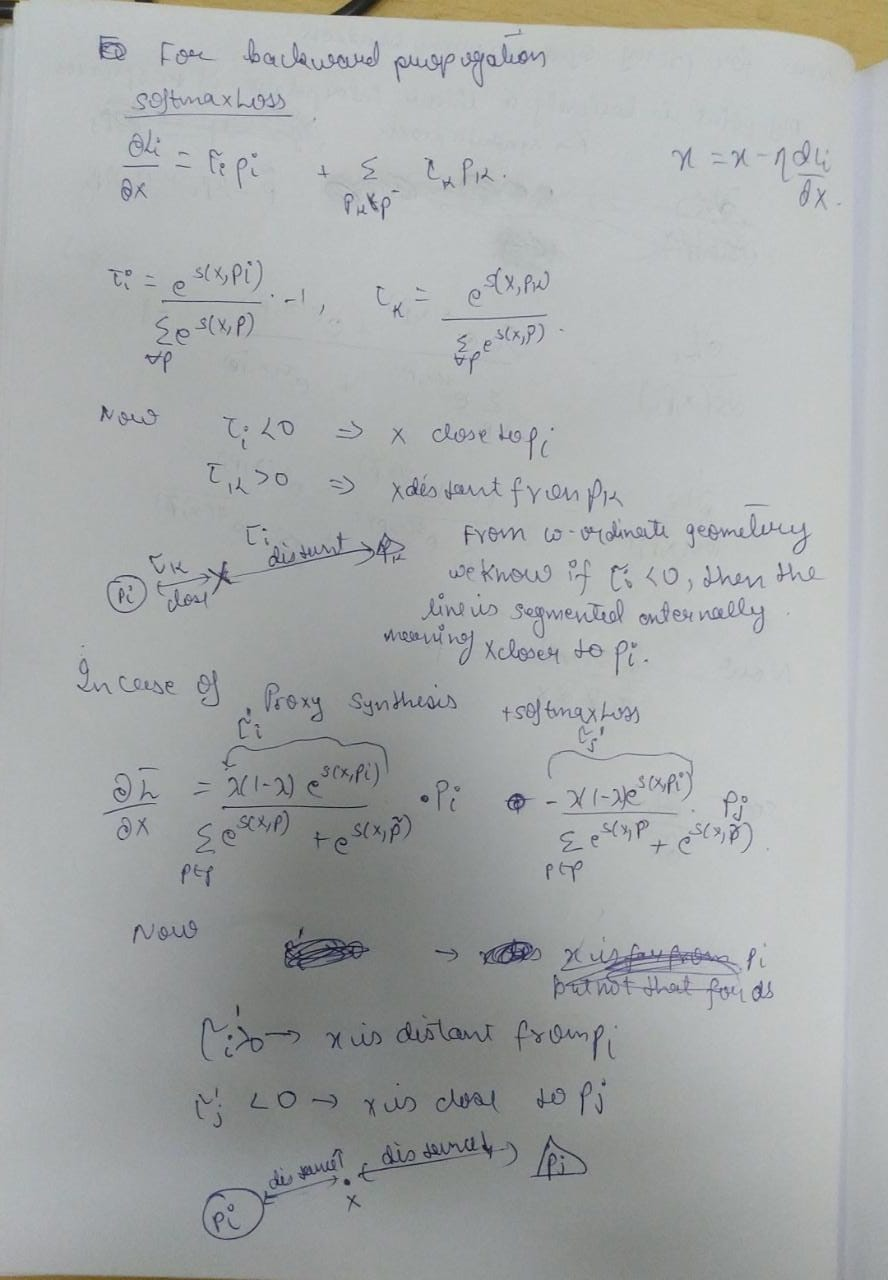 For backward propogation
softmaxLoss
∂Li/∂x = τi pi + Σ_{Pk∉p-} τk Pk.
x = x - η ∂Li/∂x.
τi = e^{s(x,Pi)} / Σ_{∀p} e^{s(x,p)} · -1, τk = e^{s(x,Pk)} / Σ_{∀p} e^{s(x,p)}.
Now τi <0 ⇒ x close to pi
τk >0 ⇒ x distant from pk
Pi τk close x τi distant Pk
From co-ordinate geometry
we know if τi <0, then the
line is segmented externally.
meaning x closer to pi.
In case of Proxy Synthesis +softmaxLoss
τi' τj'
∂L/∂x = λ(1-λ) e^{s(x,pi)} / Σ_{p∈p} e^{s(x,p)} + e^{s(x,p̃)} · Pi - λ(1-λ)e^{s(x,pi)} / Σ_{p∈p} e^{s(x,p)} + e^{s(x,p̃)}. Pj
Now → Pi
τi' >0 → x is distant from pi
τj' <0 → x is close to pj
Pi x Pj